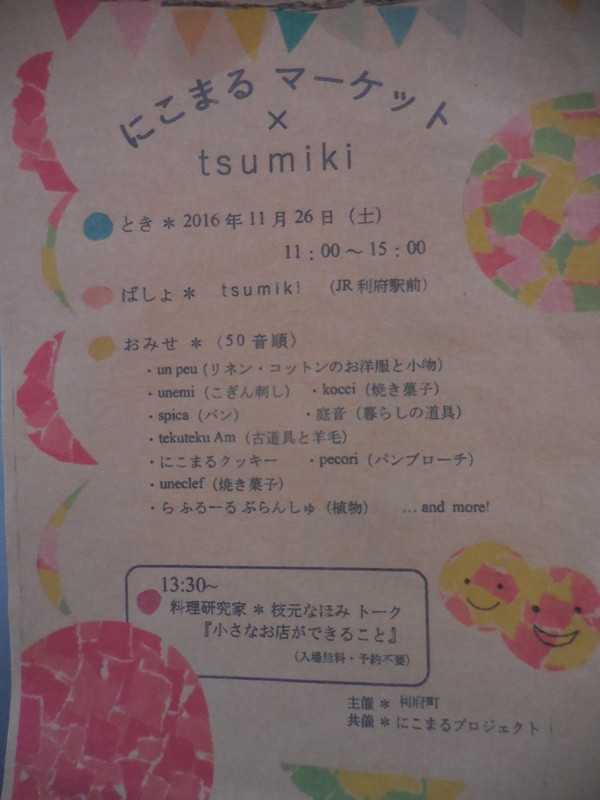 にこまる マーケット
×
tsumiki
とき ＊ 2016 年 11 月 26 日（土）
11：00 ～ 15：00
ばしょ ＊ tsumiki （JR 利府駅前）
おみせ ＊ （50 音順）
・un peu (リネン・コットンのお洋服と小物)
・unemi（こぎん刺し） ・kocci（焼き菓子）
・spica（パン） ・庭音（暮らしの道具）
・tekuteku Am（古道具と羊毛）
・にこまるクッキー ・pecori（パンブローチ）
・uneclef（焼き菓子）
・ら ふるーる ぶらんしゅ（植物） …and more!
13:30～
料理研究家 ＊ 枝元なほみ トーク
『小さなお店ができること』
（入場無料・予約不要）
主催 ＊ 利府町
共催 ＊ にこまるプロジェクト